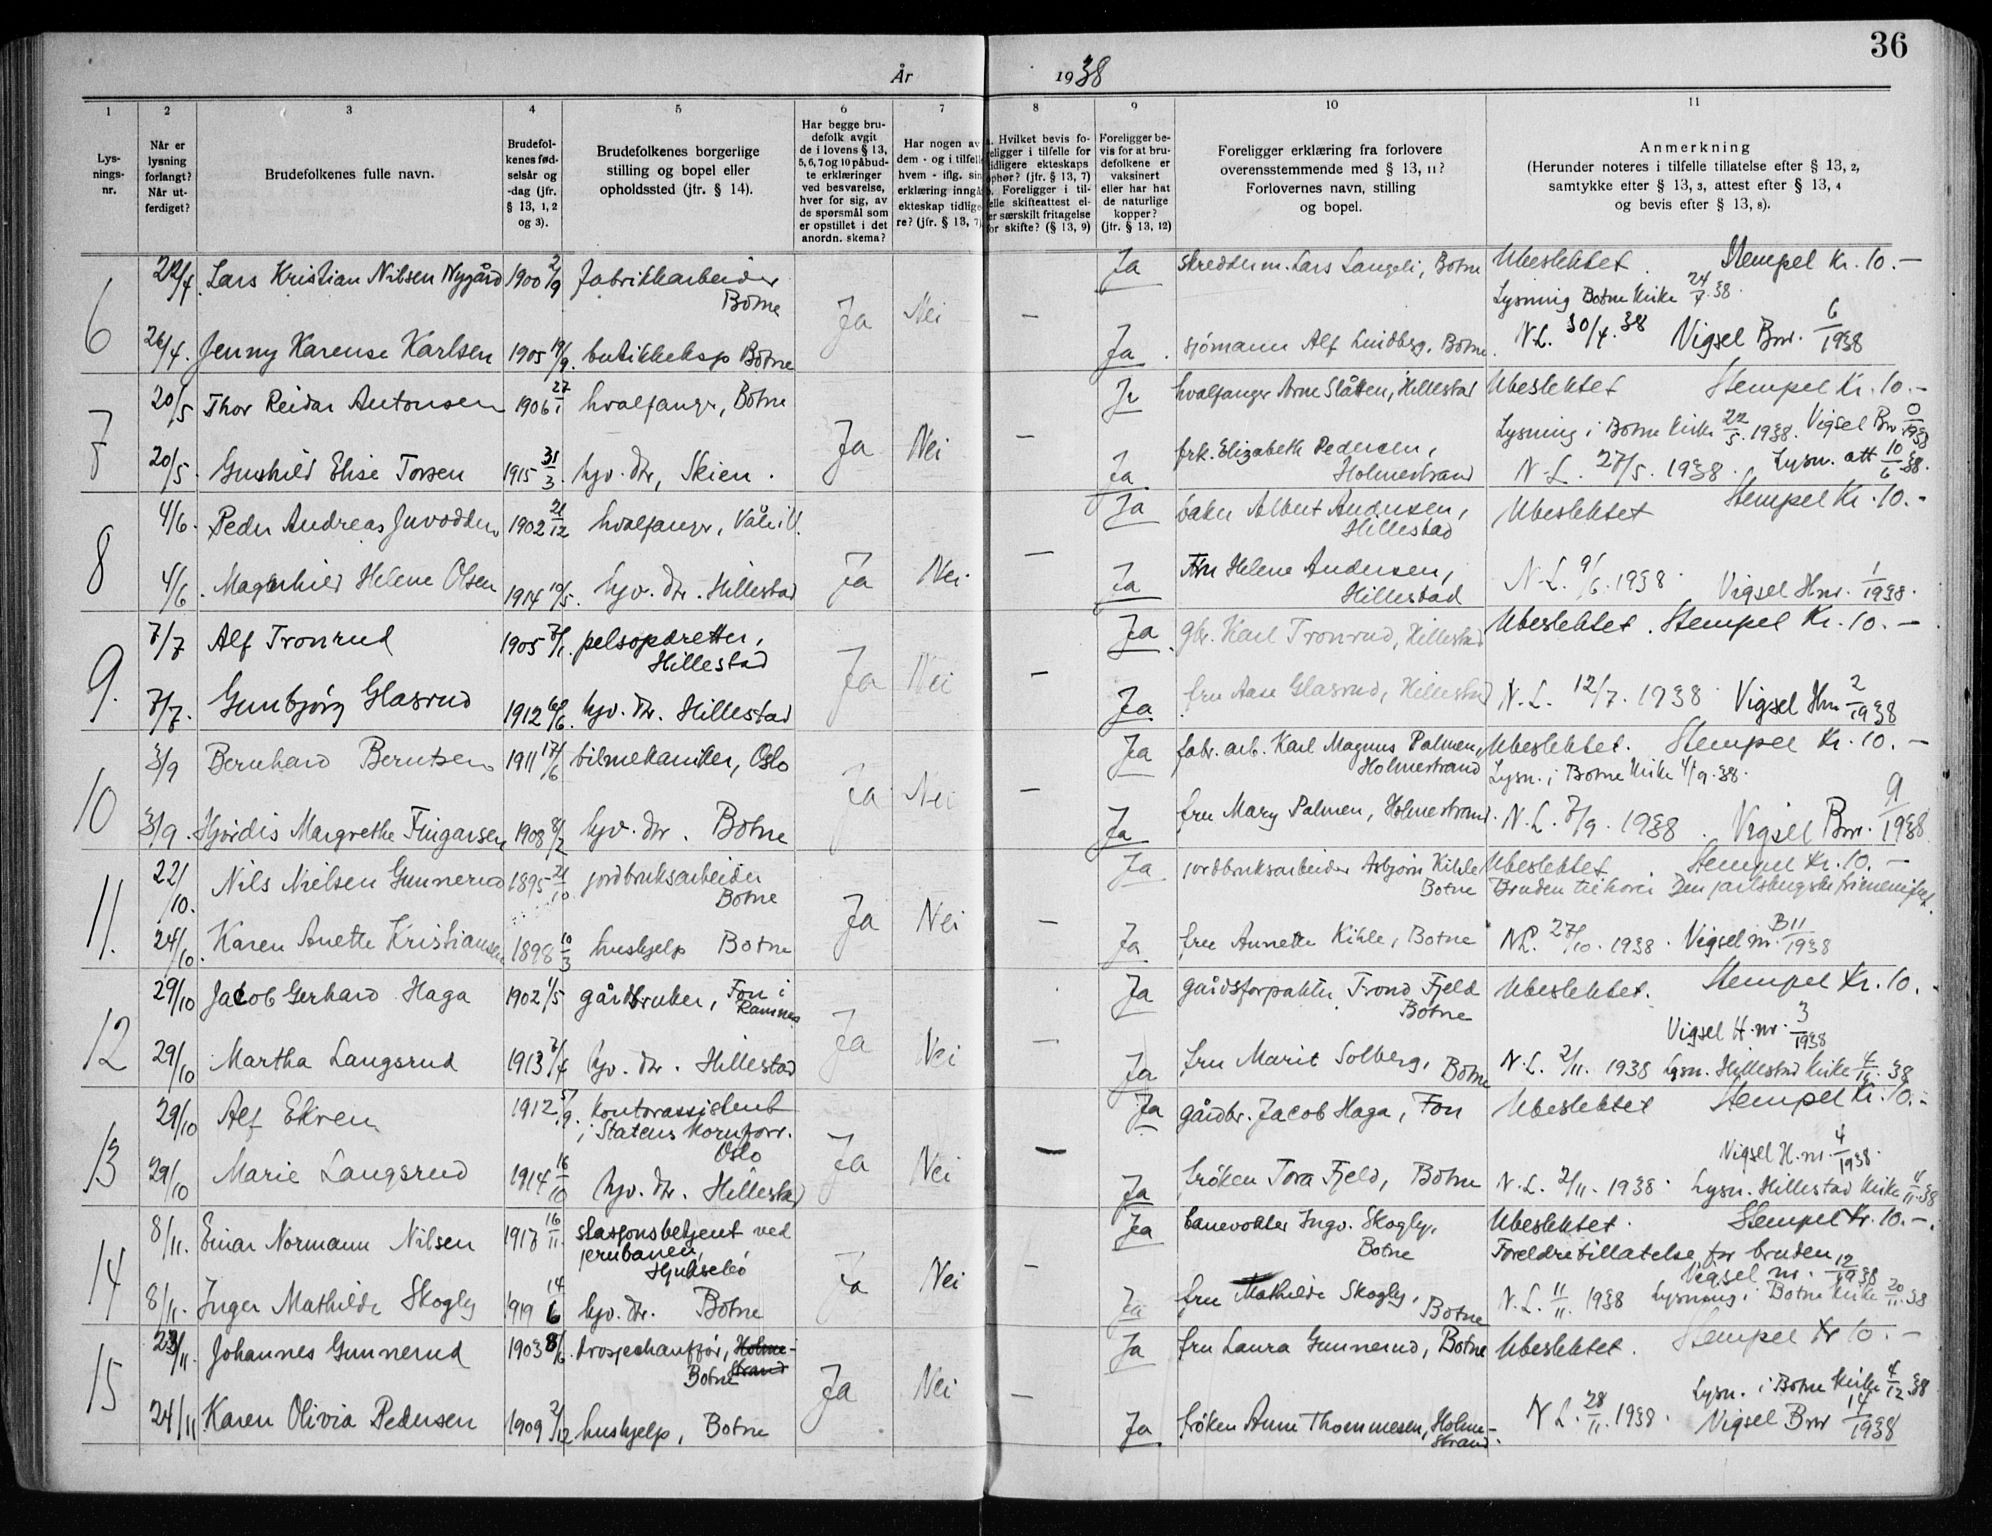 36
År 1938
1 2 3 4 5 6 7 8 9 10 11
Lysnings-nr.
Når er lysning forlangt? Når utferdiget?
Brudefolkenes fulle navn.
Brudefolkenes fødselsår og -dag (jfr. § 13, 1, 2 og 3).
Brudefolkenes borgerlige stilling og bopel eller opholdssted (jfr. § 14).
Har begge brudefolk avgit de i lovens § 13, 5, 6, 7 og 10 påbudte erklæringer ved besvarelse, hver for sig, av de spørsmål som er opstillet i det anordn. skema?
Har nogen av dem - og i tilfelle hvem - iflg. sin erklæring inngått ekteskap tidligere? (jfr. § 13, 7)
a. Hvilket bevis foreligger i tilfelle for tidligere ekteskaps ophør? (jfr. § 13, 7) b. Foreligger i tilfelle skifteattest eller særskilt fritagelse for skifte? (§ 13, 9)
Foreligger bevis for at brudefolkene er vaksinert eller har hat de naturlige kopper? (jfr. § 13, 12)
Foreligger erklæring fra forlovere overensstemmende med § 13, 11? Forlovernes navn, stilling og bopel.
Anmerkning (Herunder noteres i tilfelle tillatelse efter § 13, 2, samtykke efter § 13, 3, attest efter § 13, 4 og bevis efter § 13, 8).
6 22/4 Lars Kristian Nilsen Nygård 1900 2/9 fabrikkarbeider Botne Ja Nei — Ja skredderm. Lars Langeli, Botne Ubeslektet. Stempel Kr. 10.—
Lysning Botne kirke 24/4.38.
26/4. Jenny Karense Karlsen 1905 19/9. butikkeksp Botne Ja. sjømann Alf Lindberg, Botne. N.L. 30/4. 38 Vigsel Bnr. 6/1938
7 20/5 Thor Reidar Antonsen 1906 27/1 hvalfanger, Botne Ja Nei — Ja hvalfanger Arne Slåtten, Hillestad Ubeslektet Stempel Kr. 10.—
Lysning i Botne kirke 22/5. 1938. Vigsel Bnr
20/5. Gunhild Elise Torsen 1915 31/3. hjv. dtr, Skien. Ja frk. Elizabeth Pedersen, Holmestrand N.L. 27/5. 1938. Lysn. att 10/6 38.
8 4/6. Peder Andreas Juvodden 1902 21/12 hvalfanger, Våle i V. Ja Nei. — Ja baker Albert Andersen, Hillestad Ubeslektet Stempel Kr. 10.-
4/6. Magnhild Helene Olsen 1914 10/5. hjv. dtr. Hillestad Ja Fru Helene Andersen, Hillestad N.L. 9/6. 1938. Vigsel Hnr. 1/1938.
9. 7/7 Alf Tronrud 1905 7/1. pelsopdretter, Hillestad Ja Nei — Ja gbr. Karl Tronrud, Hillestad Ubeslektet. Stempel Kr. 10.—
7/7. Gunbjørg Glasrud 1912 6/6. hjv. dtr. Hillestad Ja fru Aase Glasrud, Hillestad N.L. 12/7. 1938. Vigsel Hnr 2/1938
10 3/9 Bernhard Berntsen 1911 17/6 bilmekaniker, Oslo Ja Nei — Ja fabr. arb. Karl Magnus Palmen, Holmestrand Ubeslektet. Stempel Kr. 10.—
Lysn. i Botne kirke 4/9.38.
3/9. Hjørdis Margrethe Fingarsen 1908 8/2 hjv. dtr. Botne Ja fru Mary Palmen, Holmestrand. N.L. 7/9. 1938. Vigsel Bnr. 9/1938
11. 22/10. Nils Nielsen Gunnerud 1895 21/10 jordbruksarbeider Botne Ja Nei — Ja jordbruksarbeider Asbjørn Kihle Botne Ubeslektet Stempel Kr. 10.—
Bruden tilhører Den jarlsbergske frimenighet.
24/10. Karen Anette Kristiansen 1898 10/3 hushjelp Botne Ja fru Annette Kihle, Botne N.L. 27/10. 1938. Vigsel nr. B11/1938
12 29/10 Jacob Gerhard Haga 1902 1/5 gårdbruker, Fon i Ramnes Ja Nei — Ja gårdsforpakter Trond Fjeld Botne Ubeslektet. Stempel Kr. 10.-
Vigsel H.nr. 3/1938
29/10 Martha Langsrud 1913 7/4 hjv. dtr. Hillestad Ja fru Marit Solberg, Botne N.L. 2/11. 1938 Lysn. Hillestad kirke 4/11.38
13 29/10 Alf Ekren 1912 5/9. kontorassistent i Statens Kornforr. Oslo Ja Nei — Ja gårdbr. Jacob Haga, Fon Ubeslektet Stempel Kr. 10.-
Vigsel H.nr. 4/1938.
29/10 Marie Langsrud 1914 16/10 hjv. dtr. Hillestad Ja frøken Tora Fjeld, Botne N.L. 2/11. 1938. Lysn. Hillestad kirke 38
14 8/11. Einar Normann Nilsen 1917 16/11. stasjonsbetjent ved jernbanen, Hjuksebø Ja Nei — Ja banevokter Ingv. Skogly, Botne Ubeslektet. Stempel Kr. 10.—.
Foreldretillatelse for bruden
Vigsel nr. 12/1938
8/11. Inger Mathilde Skogly 1919 14/6 hjv. dtr. Botne Ja fru Mathilde Skogly, Botne N.L. 11/11. 1938 Lysning i Botne kirke 20/11.38
15 23/11. Johannes Gunnerud 1903 8/6. drosjechauffør, Holmestrand Botne Ja Nei — Ja fru Laura Gunnerud, Botne Ubeslektet. Stempel Kr 10.—
Lysn. i Botne kirke 4/12.38
24/11 Karen Olivia Pedersen 1909 2/12 hushjelp, Botne Ja frøken Anne Thommesen, Holmestrand. N.L. 28/11. 1938. Vigsel Bnr 14/1938